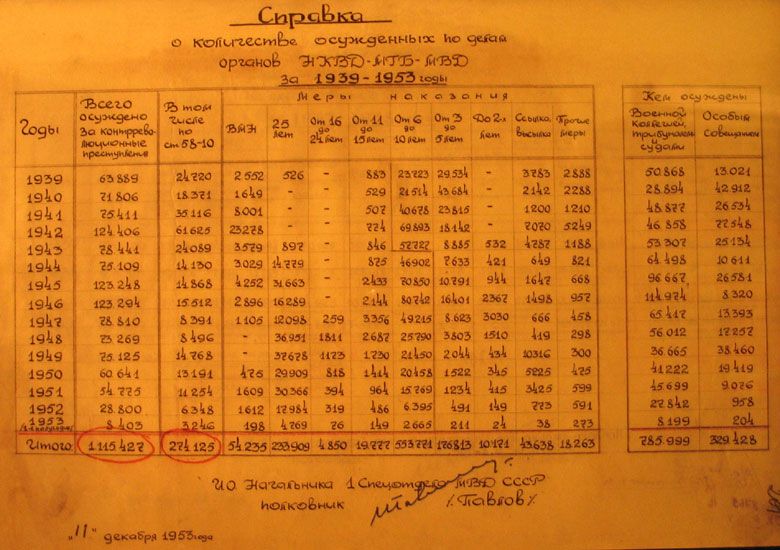 Справка
о количестве осужденных по делам
органов НКВД-МГБ-МВД
за 1939-1953 годы
Годы | Всего осуждено за контррево-люционные преступления | В том числе по ст.58-10 | Меры наказания | Кем осуждены
ВМН | 25 лет | От 16 до 24 лет | От 11 до 15 лет | От 6 до 10 лет | От 3 до 5 лет | До 2-х лет | Ссылка, высылка | Прочие меры | Военной коллегией, трибуналом, судами | Особым совещанием
1939 63889 24720 2552 526 - 883 23723 29534 - 3783 2888 50868 13.021
1940 71806 18371 1649 - - 529 21514 43684 - 2142 2288 28.894 42.912
1941 75411 35.116 8.001 - - 507 40678 23815 - 1200 1210 48.877 26.534
1942 124.406 61.625 23278 - - 774 69893 18142 - 7070 5249 46.858 77.548
1943 78.441 24089 3579 897 - 846 57727 8.885 532 4787 1188 53.307 25.134
1944 75.109 14.130 3.029 14.779 - 875 46902 7633 421 649 821 64.498 10.611
1945 123.248 14.868 4252 31.663 - 2433 70850 10.791 944 1647 668 96.667 26.581
1946 123.294 15.512 2.896 16289 - 2.144 80742 16401 2367 1498 957 114.974 8.320
1947 78.810 8.391 1105 12098 259 3356 49215 8.623 3030 666 458 65.417 13.393
1948 73.269 8.496 - 36951 1811 2.687 25.790 3803 1510 419 298 56.012 17.257
1949 75.125 14.768 - 37678 1173 1.730 21.450 2044 434 10316 300 36.665 38.460
1950 60.641 13.191 475 29.909 818 1414 20458 1522 345 5225 475 41222 19.419
1951 54.775 11.254 1609 30.366 394 964 15.769 1234 115 3425 599 45.699 9.076
1952 28.800 6.348 1612 17984 319 486 6.395 491 149 773 591 27.842 958
1953 8.403 3.246 198 4769 76 149 2665 211 24 38 273 8.199 204
Итого: 1.115.427 274.125 54.235 233909 4.850 19.777 553771 176813 10.171 43.638 18.263 785.999 329.428
ИО Начальника 1 Спецотдела МВД СССР
полковник /Павлов/
„11" декабря 1953 года